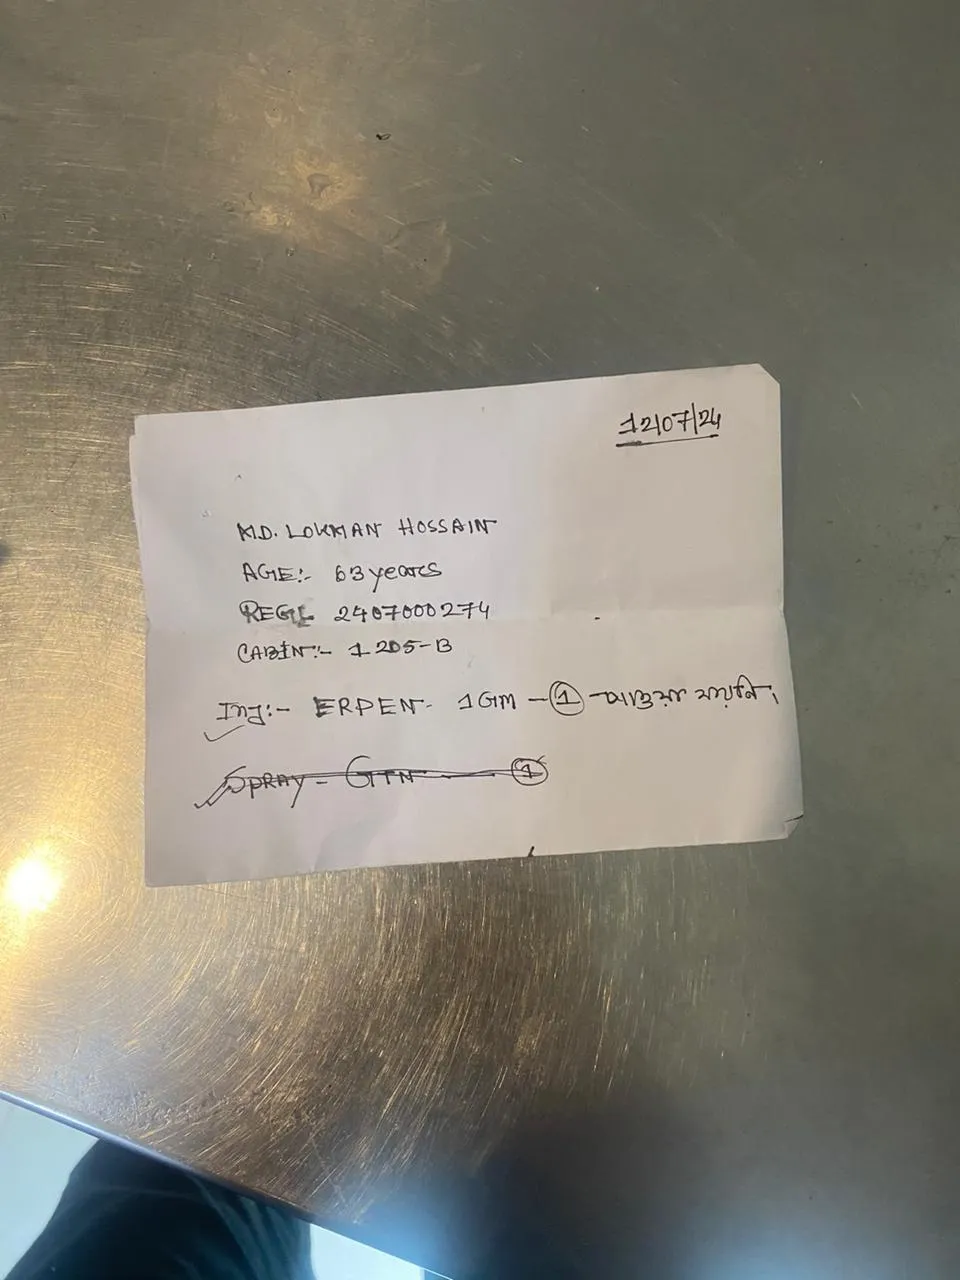 12/07/24
MD. LOKMAN HOSSAIN
AGE:- 63 years
REG: 2407000274
CABIN:- 1205-B
Inj:- ERPEN- 1GM - 1 - পাওয়া যায়নি।
Spray - GTN - 1